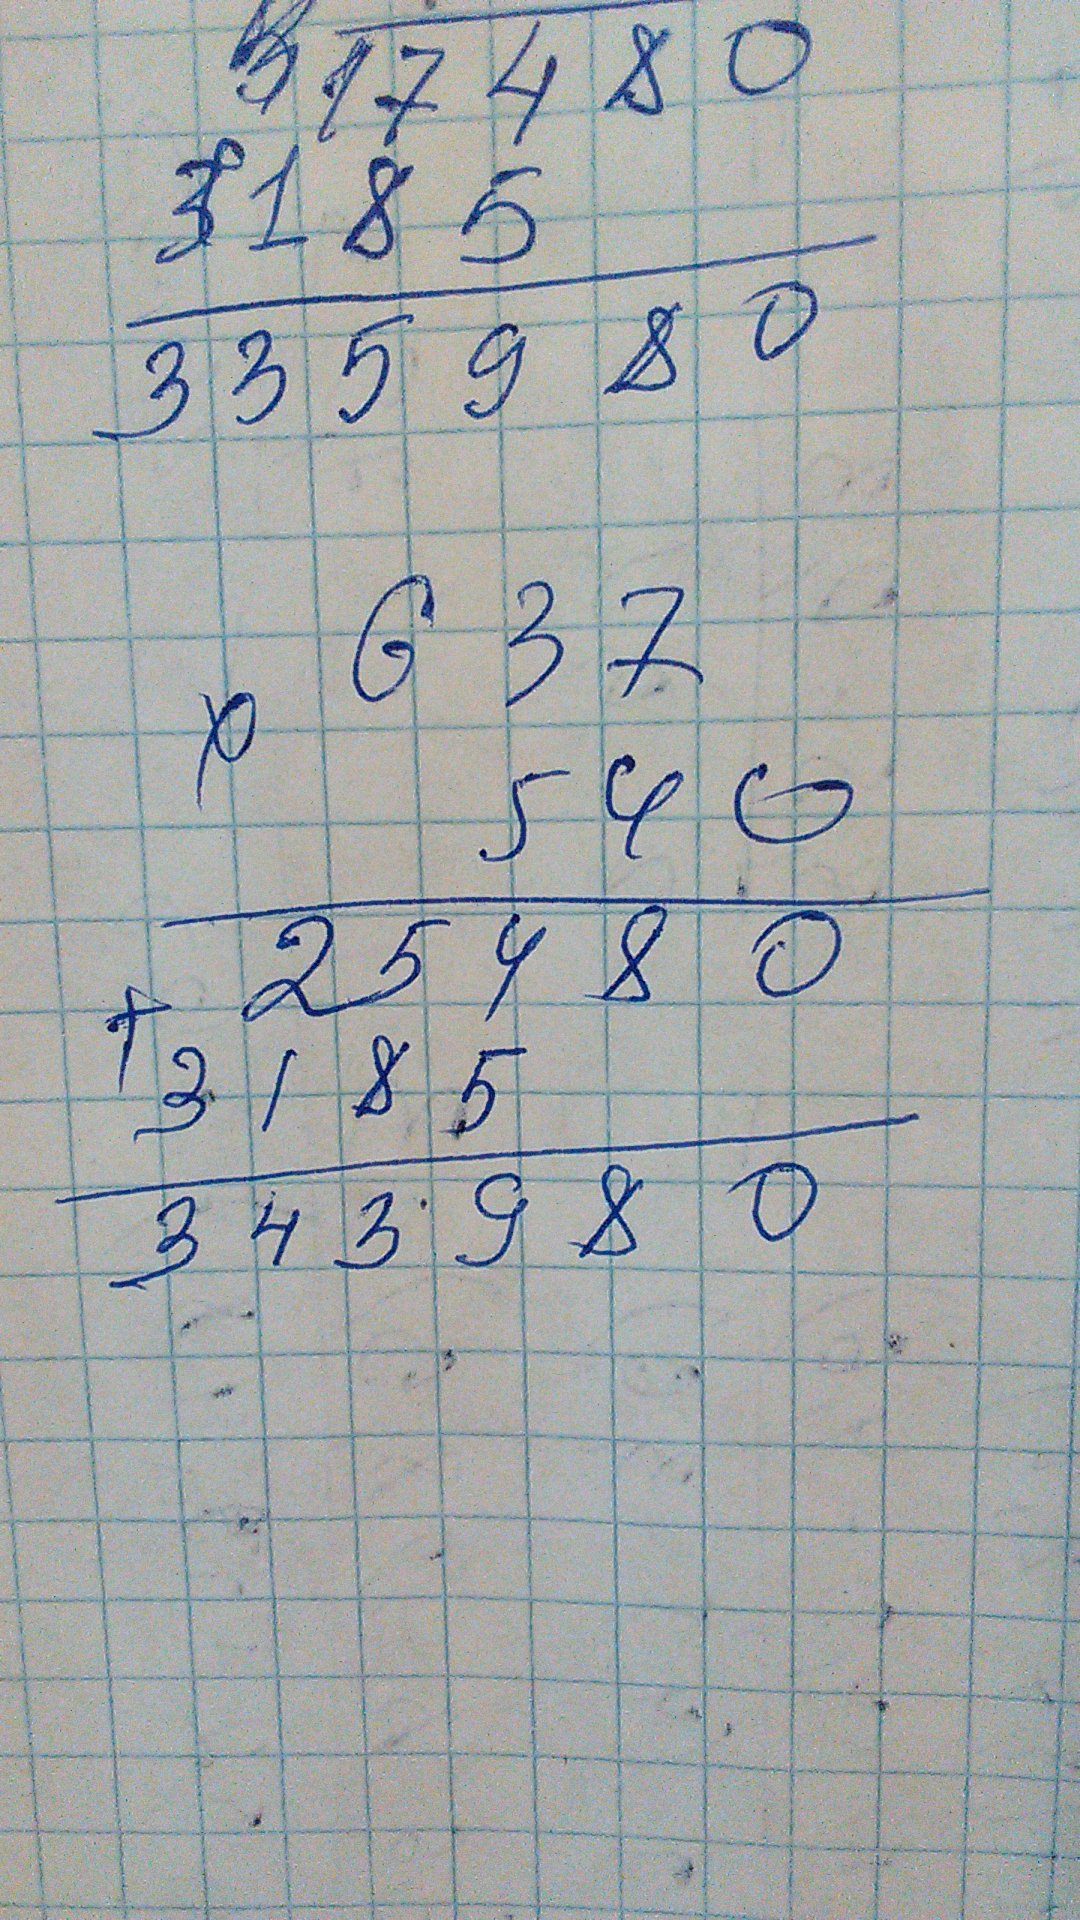 17480
3185
335980
637
540
25480
+
3185
343980